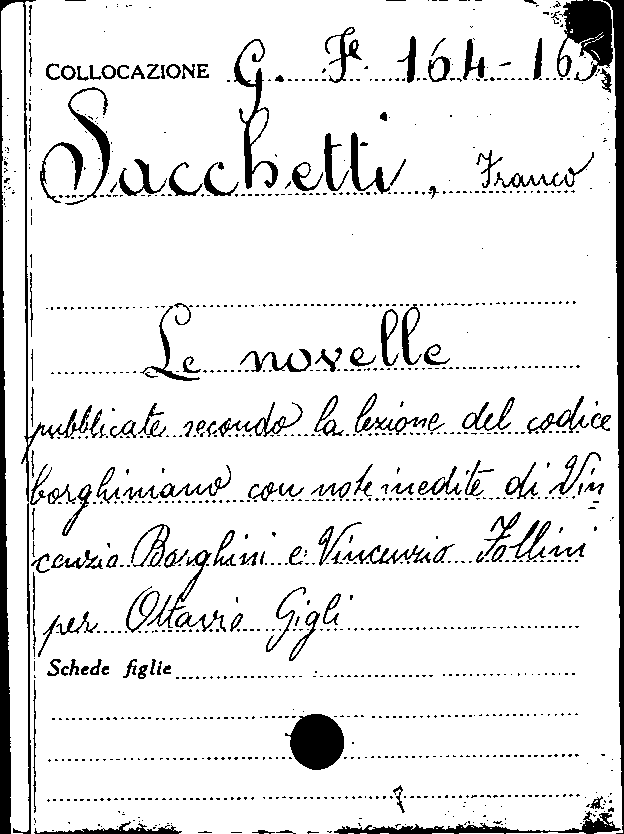 COLLOCAZIONE G. Fe. 164-165
Sacchetti, Franco
Le novelle
pubblicate secondo la lezione del codice
borghiniano con note inedite di Vin=
cenzio Borghini e Vincenzio Follini
per Ottavio Gigli
Schede figlie